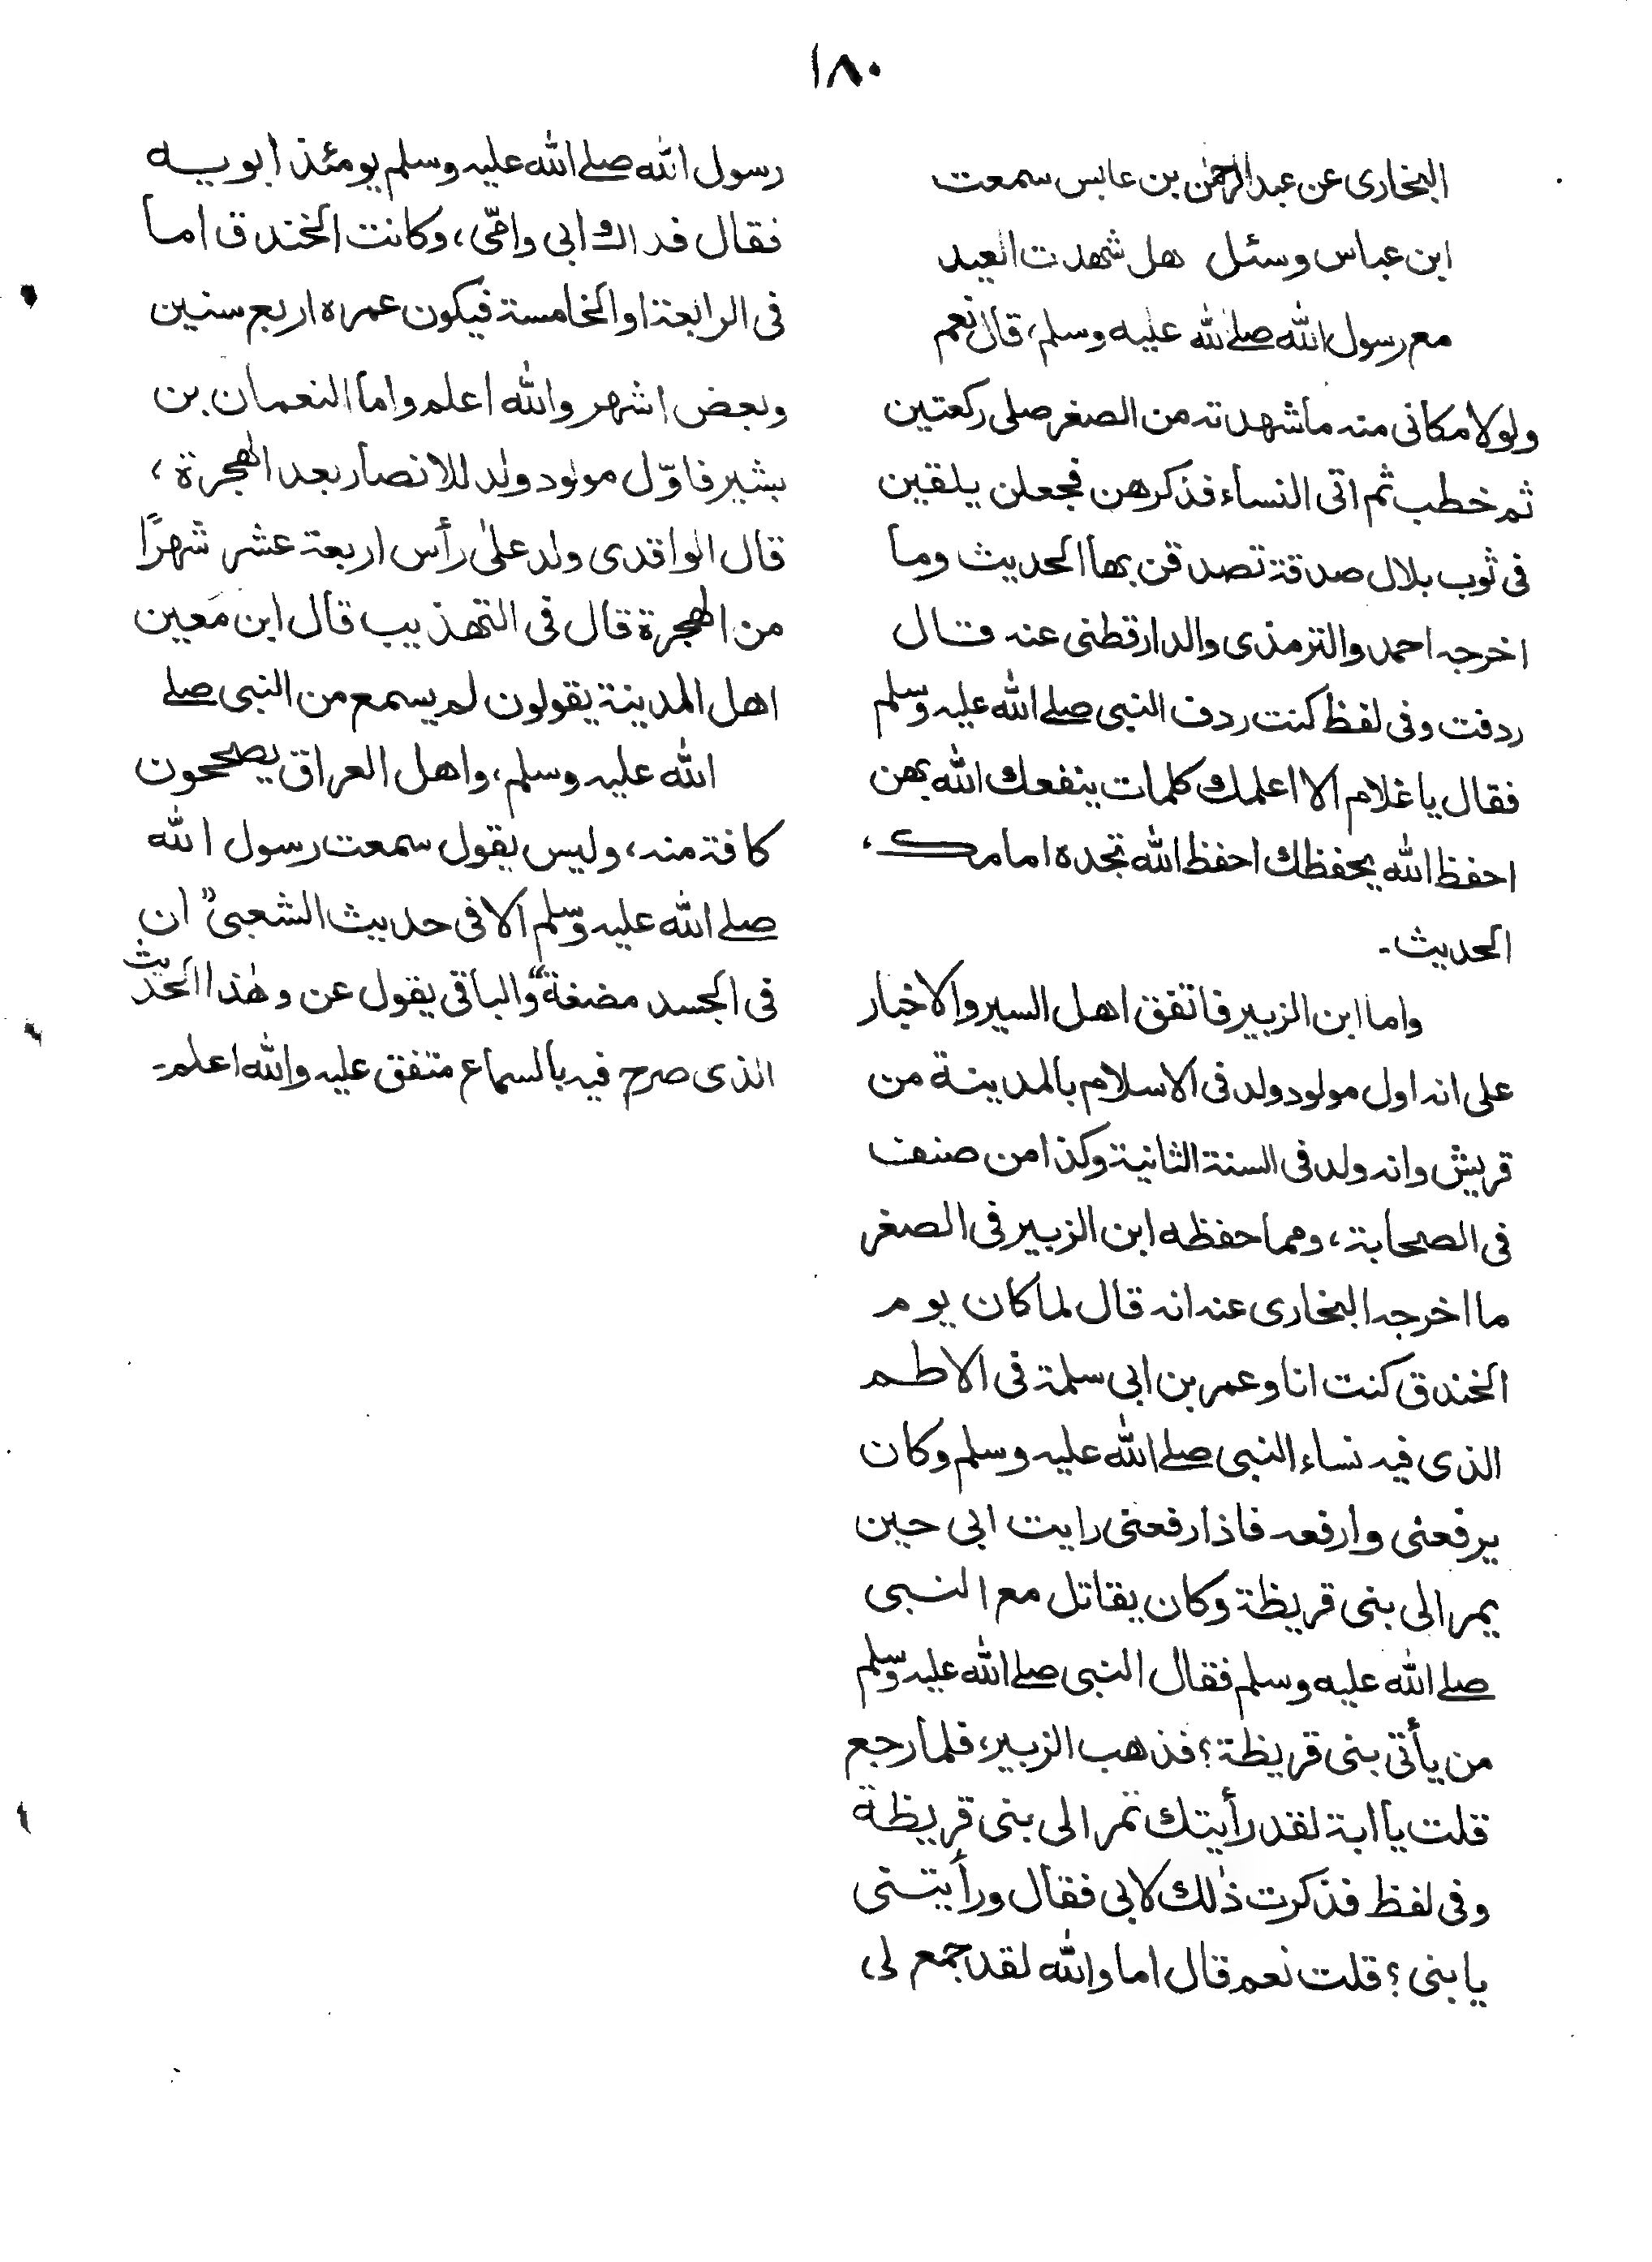 ١٨٠
البخاری عن عبدالرحمٰن بن عابس سمعت
ابن عباس وسئل هل شهدت العید
مع رسول الله صلے الله علیه وسلم، قال نعم
ولولا مکانی منه ما شهدته من الصغر صلی رکعتین
ثم خطب ثم اتی النساء فذکرهن فجعلن یلقین
فی ثوب بلال صدقة تصدقن بها الحدیث وما
اخرجه احمد والترمذی والدارقطنی عنه قال
ردفت وفی لفظ کنت ردف النبی صلے الله علیه وسلم
فقال یا غلام الا اعلمك کلمات ینفعك الله بهن
احفظ الله یحفظك احفظ الله تجده امامک،
الحدیث۔
واما ابن الزبیر فاتفق اهل السیر والاخبار
علی انه اول مولود ولد فی الاسلام بالمدینة من
قریش وانه ولد فی السنة الثانیة وکذا من صنف
فی الصحابة، ومما حفظه ابن الزبیر فی الصغر
ما اخرجه البخاری عنه انه قال لما کان یوم
الخندق کنت انا وعمر بن ابی سلمة فی الاطم
الذی فیه نساء النبی صلے الله علیه وسلم وکان
یرفعنی وارفعه فاذا رفعنی رایت ابی حین
یمر الی بنی قریظة وکان یقاتل مع النبی
صلے الله علیه وسلم فقال النبی صلے الله علیه وسلم
من یأتی بنی قریظة؟ فذهب الزبیر، فلما رجع
قلت یا ابة لقد رأیتك تمر الی بنی قریظة
وفی لفظ فذکرت ذٰلك لابی فقال ورأیتنی
یا بنی؟ قلت نعم قال اما والله لقد جمع لی
رسول الله صلے الله علیه وسلم یومئذ ابویه
فقال فداك ابی وامّی، وکانت الخندق اما
فی الرابعة او الخامسة فیکون عمره اربع سنین
وبعض اشهر والله اعلم واما النعمان بن
بشیر فاوّل مولود ولد للانصار بعد الهجرة،
قال الواقدی ولد علیٰ رأس اربعة عشر شهرًا
من الهجرة قال فی التهذیب قال ابن مَعین
اهل المدینة یقولون لم یسمع من النبی صلے
الله علیه وسلم، واهل العراق یصححون
کافة منه، ولیس یقول سمعت رسول الله
صلے الله علیه وسلم الا فی حدیث الشعبی "ان
فی الجسد مضغة" والباقی یقول عن وهٰذا الحدیث
الذی صرح فیه بالسماع متفق علیه والله اعلم۔